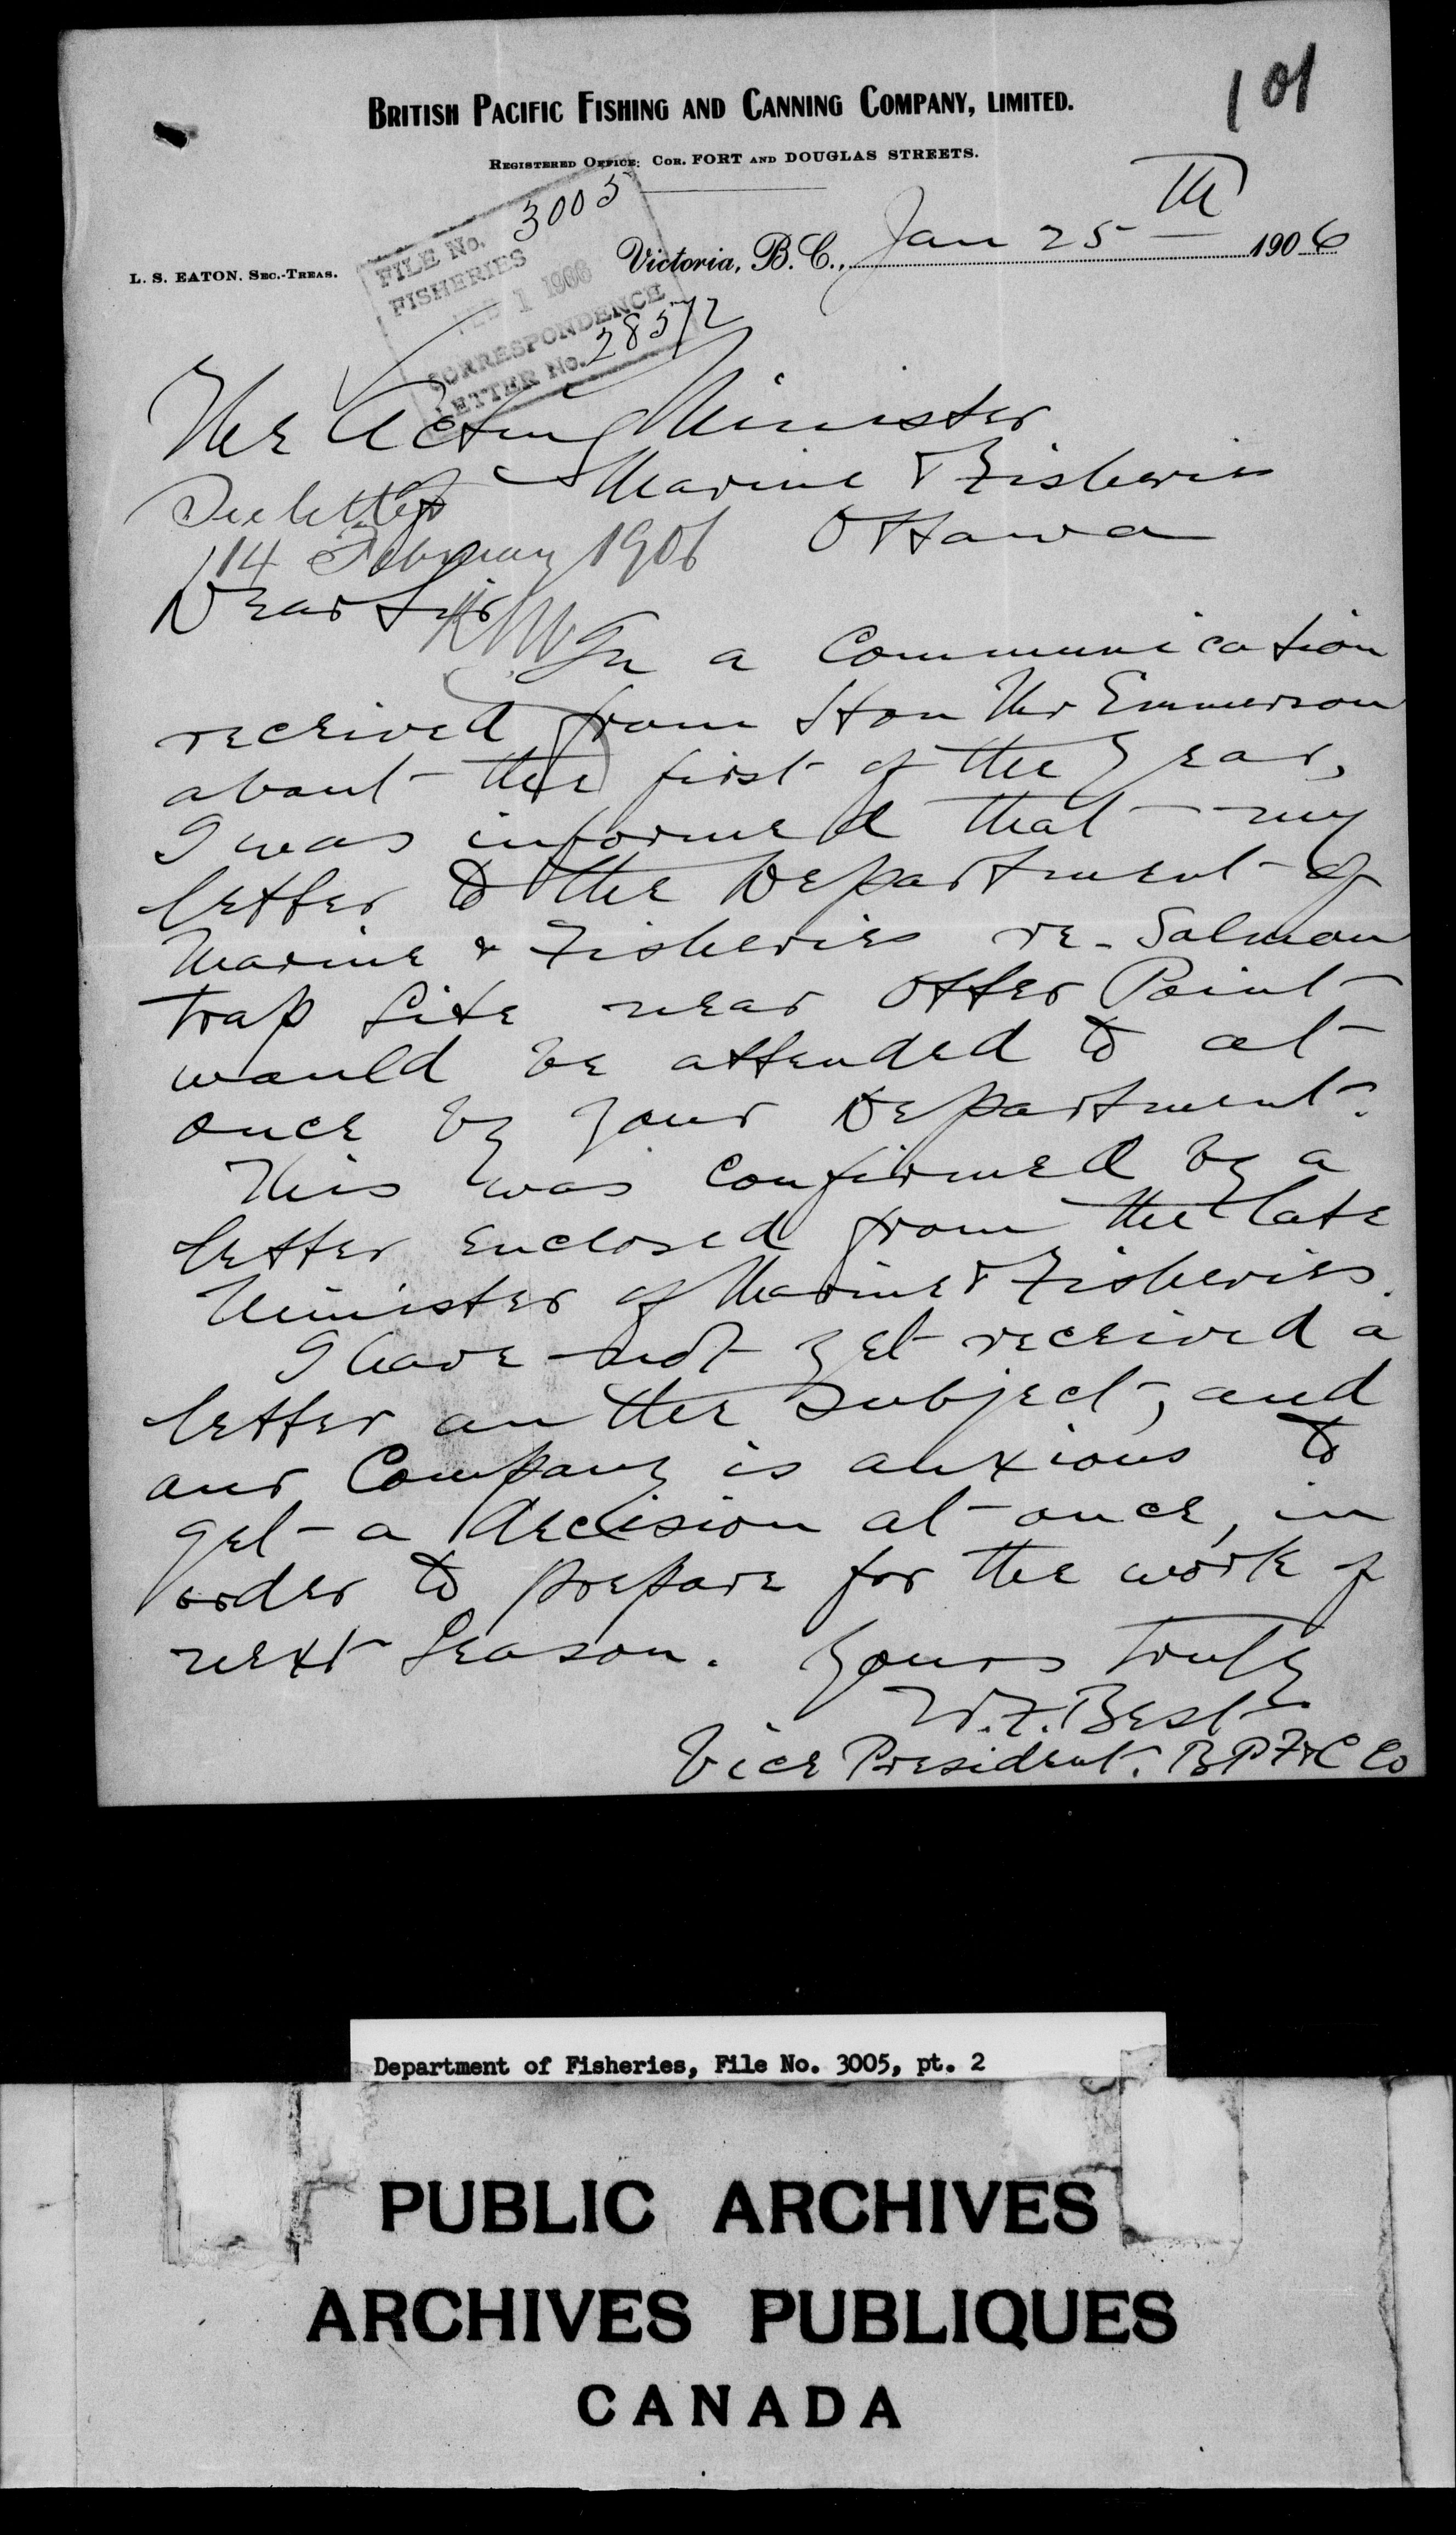 101
BRITISH PACIFIC FISHING AND CANNING COMPANY, LIMITED.
REGISTERED OFFICE: COR. FORT AND DOUGLAS STREETS.
FILE No. 3005
FISHERIES
FEB 1 1906
CORRESPONDENCE
LETTER No. 28572
L. S. EATON, SEC.-TREAS.
Victoria, B. C., Jan 25th 1906
The Acting Minister
Marine & Fisheries
Ottawa
See letter
14 February 1906
Dear Sir
In a Communication
received from Hon Mr Emmerson
about the first of the year,
I was informed that my
letter to the Department of
Marine & Fisheries re-Salmon
trap site near Otter Point
would be attended to at
once by your Department.
This was confirmed by a
letter enclosed from the late
Minister of Marine & Fisheries.
I have not yet received a
letter on the subject, and
our Company is anxious to
get a decision at once, in
order to prepare for the work of
next season. Yours truly
W.F. Best
Vice President. B P F & C Co
Department of Fisheries, File No. 3005, pt. 2
PUBLIC ARCHIVES
ARCHIVES PUBLIQUES
CANADA